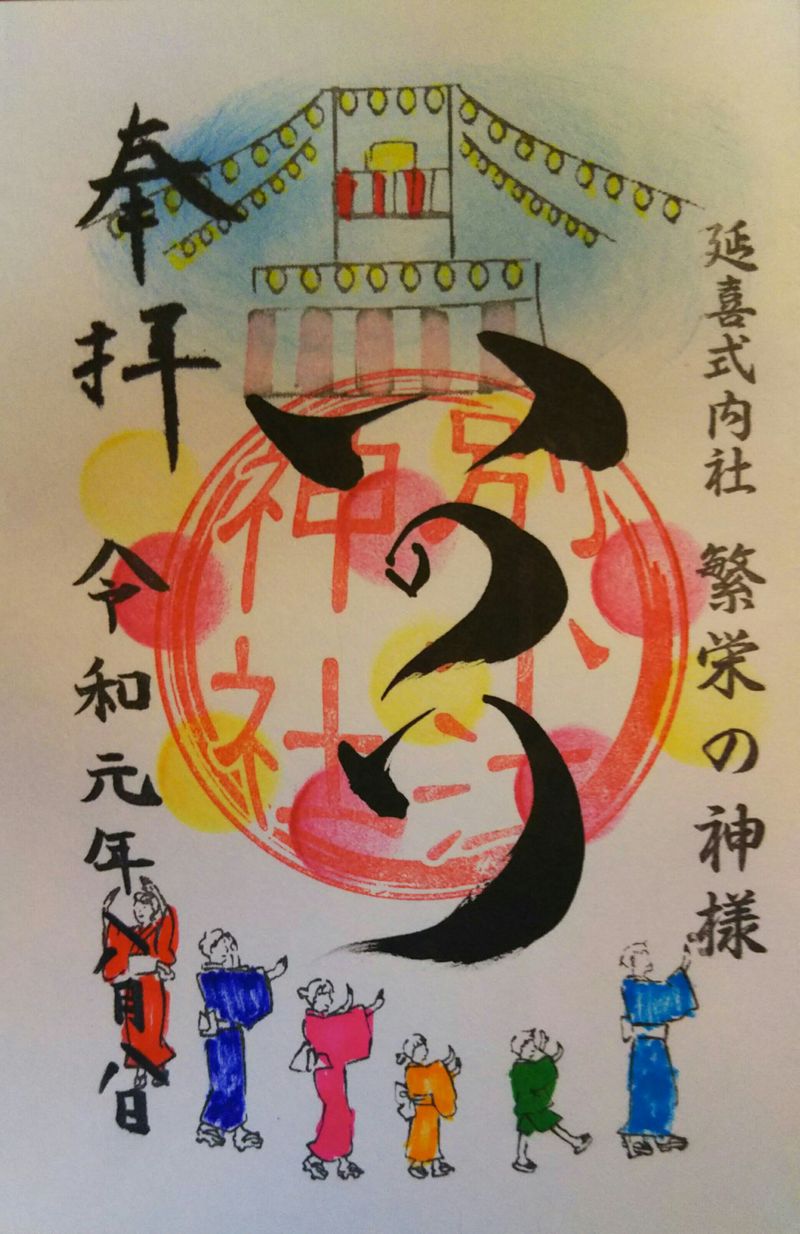 延喜式内社 繁栄の神様
いのり
別小江
神社
奉拝 令和元年八月八日